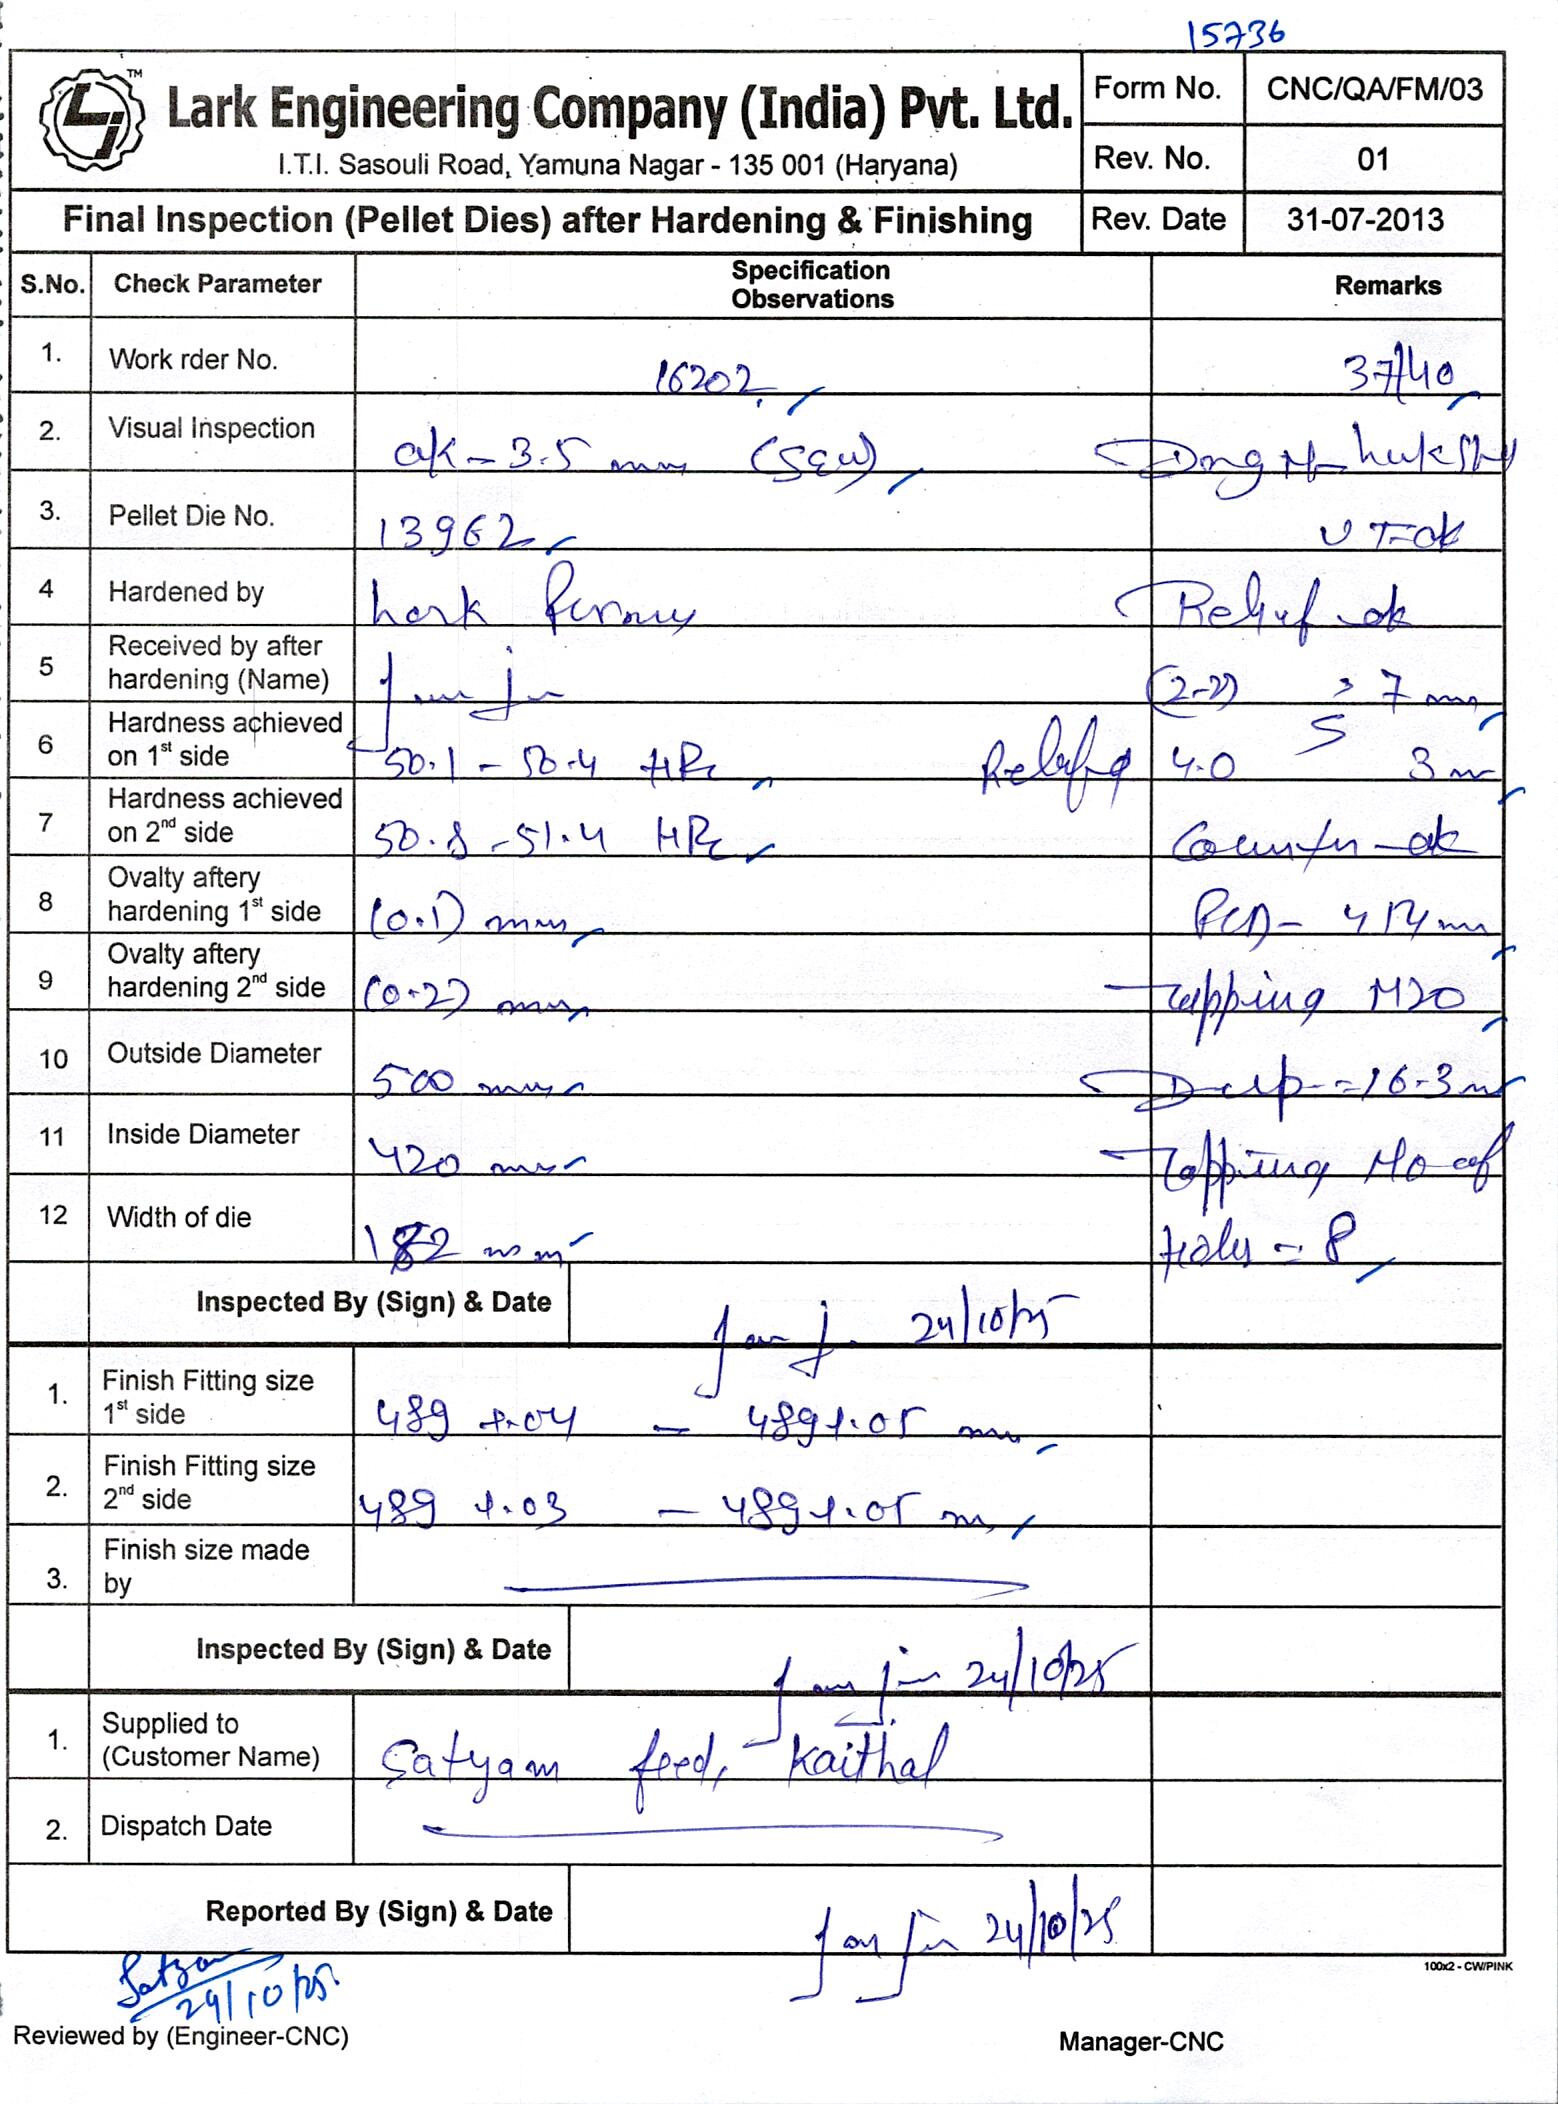 15736
TM
Lark Engineering Company (India) Pvt. Ltd.
I.T.I. Sasouli Road, Yamuna Nagar - 135 001 (Haryana)
Form No. CNC/QA/FM/03
Rev. No. 01
Final Inspection (Pellet Dies) after Hardening & Finishing
Rev. Date 31-07-2013
S.No. Check Parameter Specification Observations Remarks
1. Work rder No. 16202 37/40
2. Visual Inspection ok - 3.5 mm
3. Pellet Die No. 13962 UT-ok
4 Hardened by Lark Relief ok
5 Received by after hardening (Name) (2-2) 7 mm
6 Hardness achieved on 1st side 50.1 - 50.4 HRc 4.0 3 m
7 Hardness achieved on 2nd side 50.8 - 51.4 HRc Counter - ok
8 Ovalty aftery hardening 1st side (0.1) mm PCD - mm
9 Ovalty aftery hardening 2nd side (0.2) mm Tapping M20
10 Outside Diameter 500 mm Deep = 16.3 m
11 Inside Diameter 420 mm Tapping No of
12 Width of die 182 mm Holes = 8
Inspected By (Sign) & Date 24/10/25
1. Finish Fitting size 1st side 489 +.04 - 489+.05 mm
2. Finish Fitting size 2nd side 489 +.03 - 489+.05 m
3. Finish size made by
Inspected By (Sign) & Date 24/10/25
1. Supplied to (Customer Name) Satyam feed, Kaithal
2. Dispatch Date
Reported By (Sign) & Date 24/10/25
100x2 - CW/PINK
24/10/25
Reviewed by (Engineer-CNC) Manager-CNC